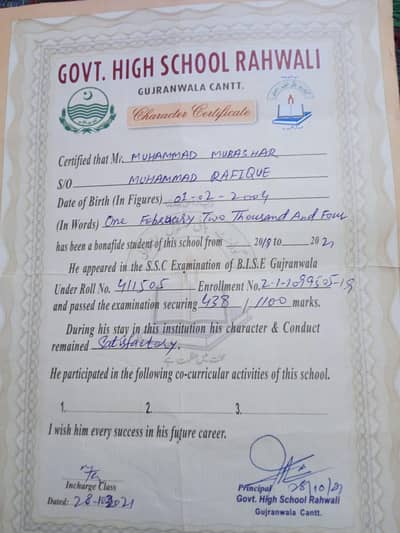 GOVT. HIGH SCHOOL RAHWALI
GUJRANWALA CANTT.
Character Certificate
Certified that Mr. MUHAMMAD MUBASHAR
S/O MUHAMMAD RAFIQUE
Date of Birth (In Figures) 01-02-2004
(In Words) One February Two Thousand And Four
has been a bonafide student of this school from 2018 to 2021
He appeared in the S.S.C Examination of B.I.S.E Gujranwala
Under Roll No. 411505 Enrollment No. 2-1-1099505-19
and passed the examination securing 438 / 1100 marks.
During his stay in this institution his character & Conduct
remained Satisfactory.
He participated in the following co-curricular activities of this school.
1. 2. 3.
I wish him every success in his future career.
Incharge Class
Dated: 28-10-2021
Principal 28/10/21
Govt. High School Rahwali
Gujranwala Cantt.